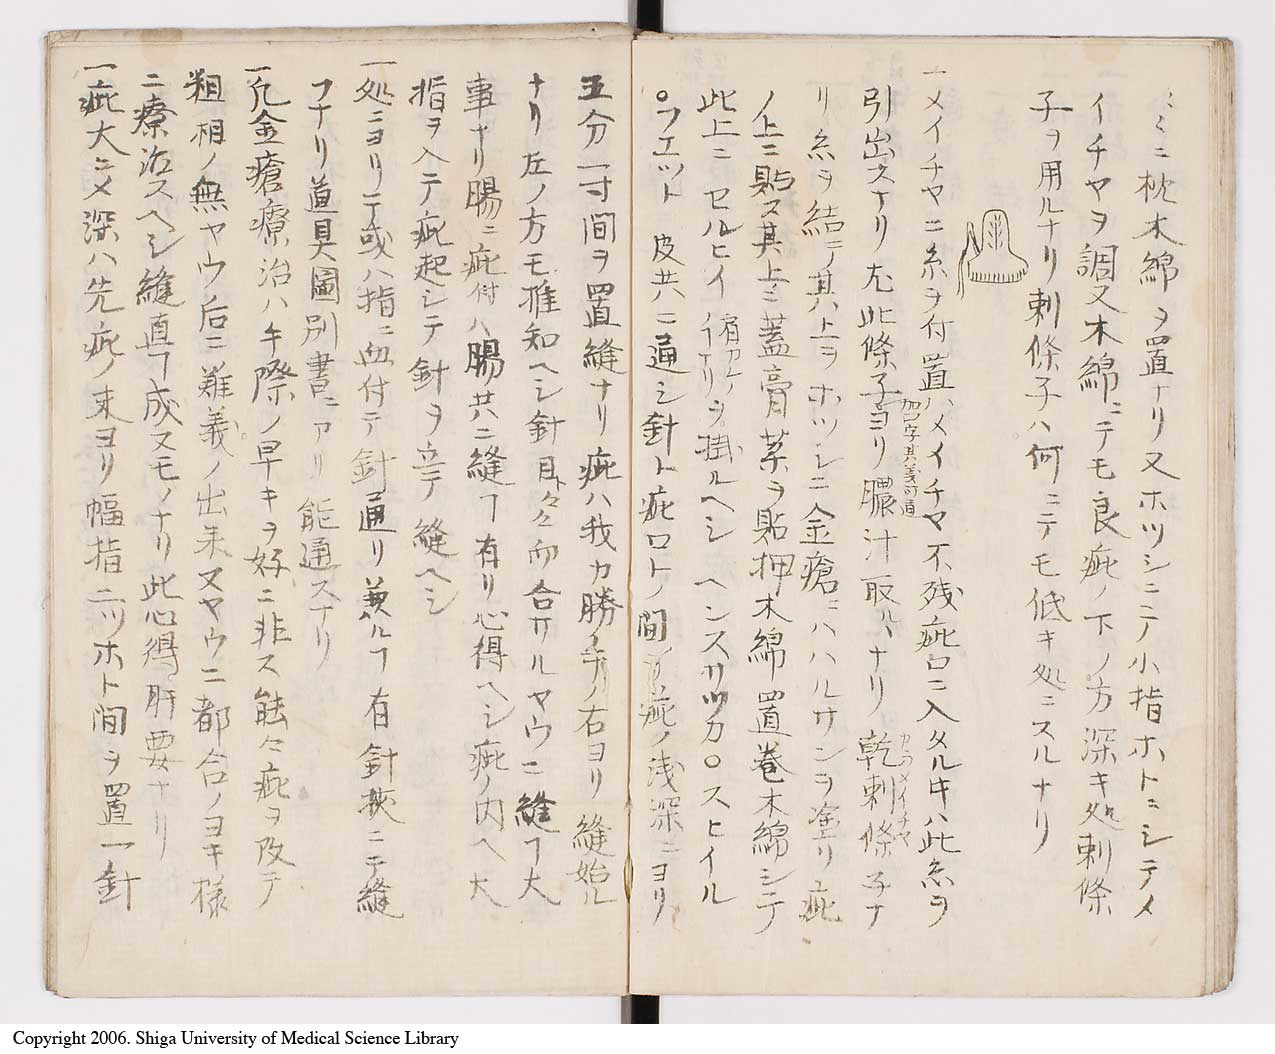 ミニ枕木綿ヲ置ナリ又ホツシニテ小指ホトニシテメ
イチヤヲ調又木綿ニテモ良疵ノ下ノ方深キ処刺條
子ヲ用ルナリ刺條子ハ何ニテモ低キ処ニスルナリ
一メイチヤニ糸ヲ付置ハメイチヤ不残疵口ニ入タルキハ此糸ヲ
引出スナリ尤此條子ヨリ膿汁取ルヽナリ乾刺條子ナ
カラメイチヤ
リ糸ヲ結テ其上ヲホツシニ金瘡ニハハルサンヲ塗リ疵
ノ上ニ貼ス其上ニ蓋膏薬ヲ貼押木綿置巻木綿シテ
此上ニセルヒイ ヲ掛ルヘシ ヘンスサツカロスヒイル
○フエツト 皮共ニ通シ針ト疵口ト間 疵ノ浅深ニヨリ
五分一寸間ヲ置縫ナリ疵ハ我カ勝手ノ右ヨリ縫始ル
ナリ左ノ方モ推知ヘシ針目ト々々而合サルヤウニ縫フ大
事ナリ腸ニ疵付ハ腸共ニ縫フ有リ心得ヘシ疵ノ内ヘ大
指ヲ入テ疵起シテ針ヲ立テ縫ヘシ
一処ニヨリテ或ハ指ニ血付テ針通リ兼ルフ有針挾ニテ縫
フナリ道具圖別書ニアリ能通スナリ
一凡金瘡療治ハ手際ノ早キヲ好ニ非ス能々疵ヲ改テ
粗相ノ無ヤウ后ニ難義ノ出来ヌヤウニ都合ノヨキ様
ニ療治スヘシ縫直フ成ヌモノナリ此心得肝要ナリ
一疵大ニメ深ハ先疵ノ末ヨリ幅指二ツホト間ヲ置一針
Copyright 2006. Shiga University of Medical Science Library